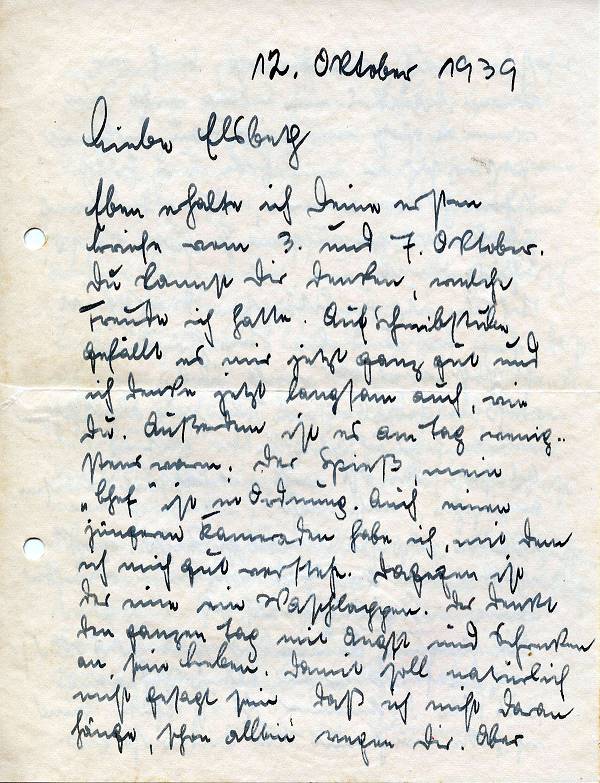 12. Oktober 1939
Liebe Elsbeth
Eben erhalte ich Deine ersten
Briefe vom 3. und 7. Oktober.
Du kannst Dir denken, welche
Freude ich hatte. Auf Schreibstube
gefällt es mir jetzt ganz gut und
ich denke jetzt langsam auch, wie
Du. Außerdem ist es am Tag wenig-
stens warm. Der Spieß, mein
„Chef" ist in Ordnung. Auch einen
jüngeren Kameraden habe ich, mit dem
ich mich gut verstehe. Dagegen ist
der eine ein Waschlappen. Der denkt
den ganzen Tag mit Angst und Schrecken
an sein Leben. Damit soll natürlich
nicht gesagt sein, daß ich nicht daran
hänge, schon allein wegen Dir. Aber